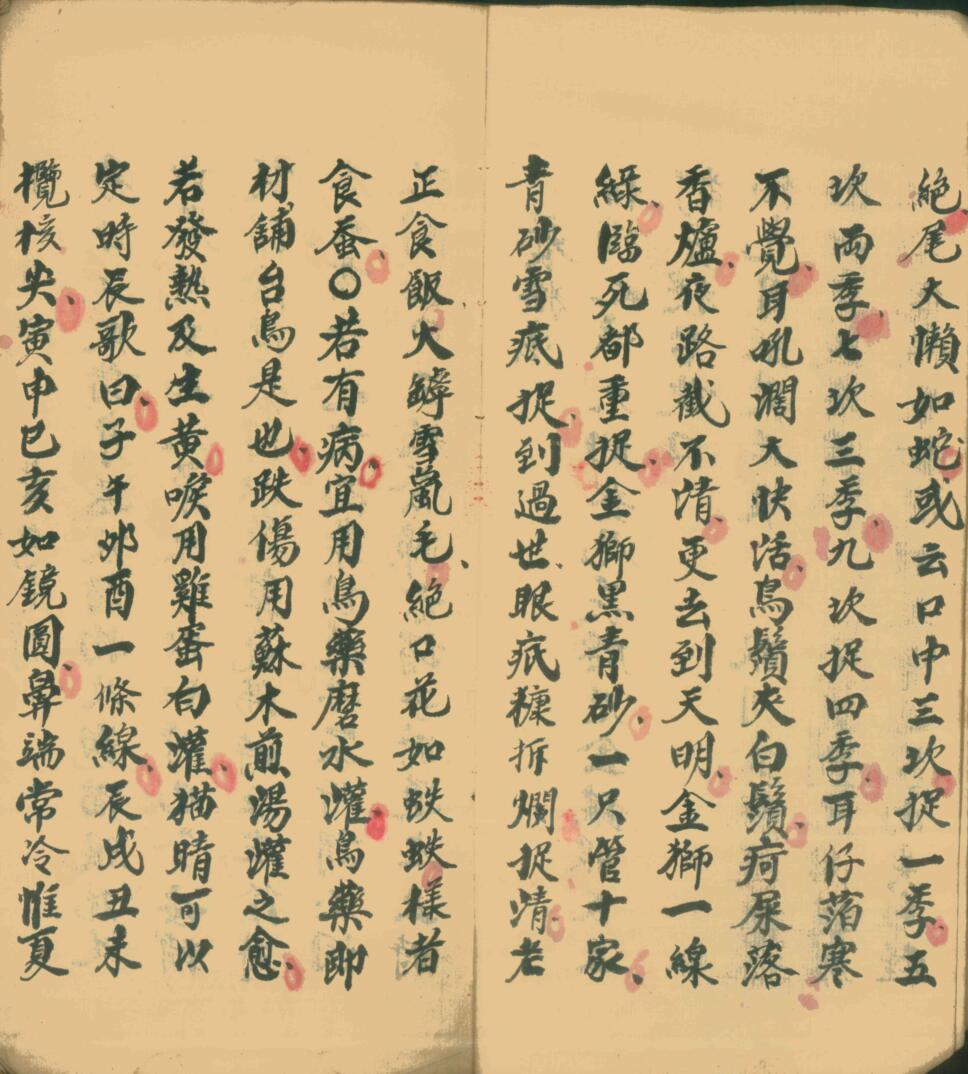 絕尾大懶如蛇或云口中三次捉一季五
次両季七次三季九次捉四季耳仔落寒
不覺耳吼濶大快活鳥鬚夾白鬚疴屎落
香爐夜路截不清更去到天明金獅一線
綠臨死都重捉金獅黑青砂一只管十家
青砂雪疷捉到過世眼疷糠拆爛捉清老
正食飯大罅雪嵐毛絕口花如蛱蛱樣者
食蚕〇若有病宜用鳥藥磨水灌鳥藥即
材舖台鳥是也跌傷用蘇木煎湯灌之愈
若發熱及生黄唳用雞蛋白灌猫晴可以
定時辰歌曰子午夘酉一條線辰戌丑未
欖核尖寅申巳亥如鏡圓鼻端常冷惟夏